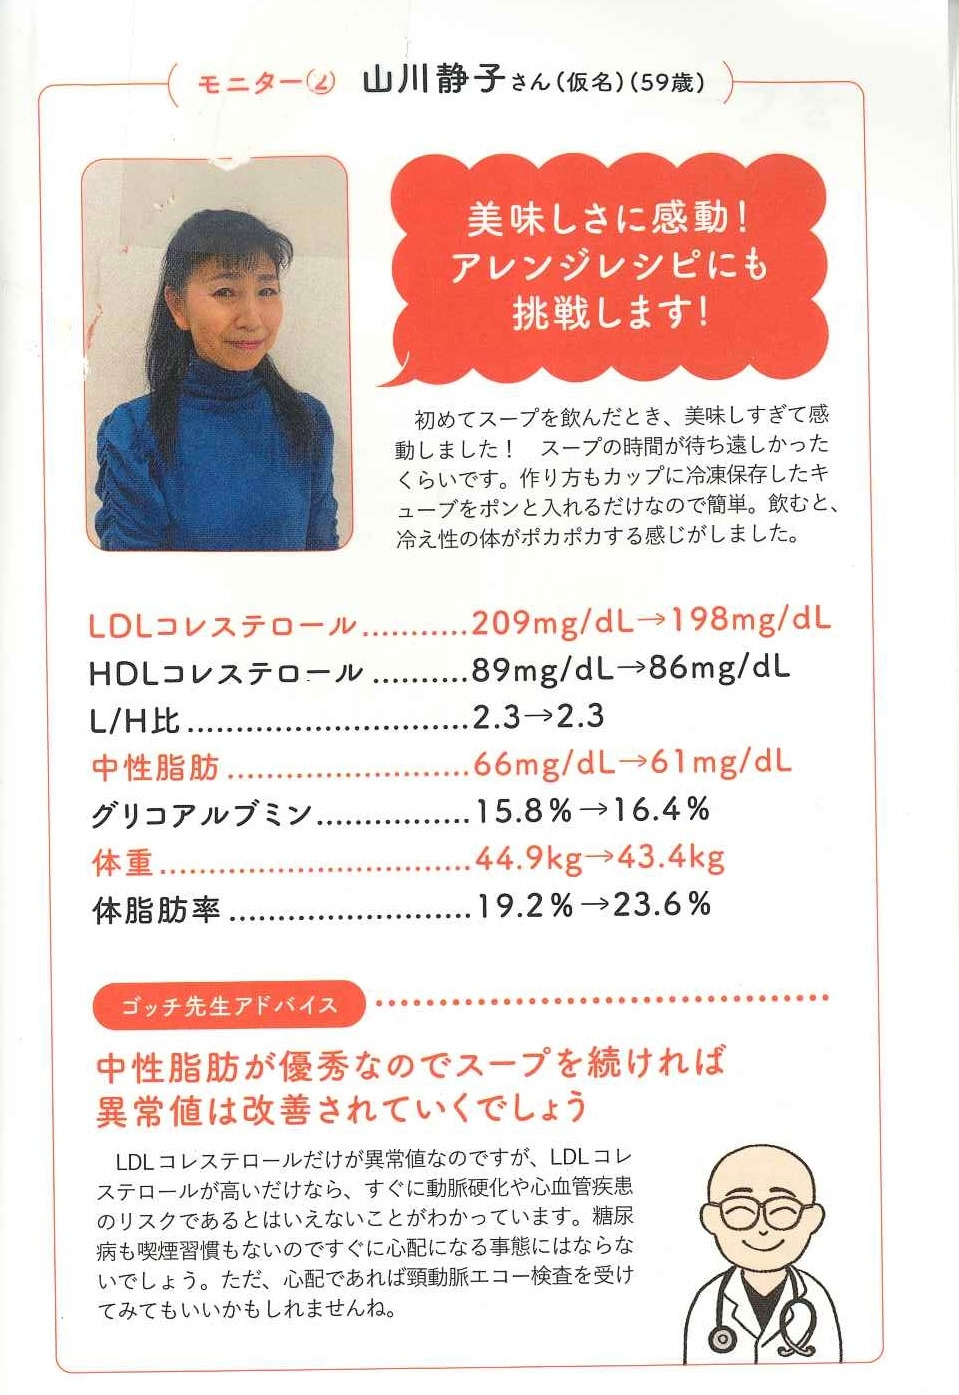 モニター② 山川静子さん(仮名)(59歳)
美味しさに感動!
アレンジレシピにも
挑戦します!
初めてスープを飲んだとき、美味しすぎて感
動しました! スープの時間が待ち遠しかった
くらいです。作り方もカップに冷凍保存したキ
ューブをポンと入れるだけなので簡単。飲むと、
冷え性の体がポカポカする感じがしました。
LDLコレステロール...........209mg/dL→198mg/dL
HDLコレステロール..........89mg/dL→86mg/dL
L/H比.............................2.3→2.3
中性脂肪.........................66mg/dL→61mg/dL
グリコアルブミン................15.8%→16.4%
体重................................44.9kg→43.4kg
体脂肪率.........................19.2%→23.6%
ゴッチ先生アドバイス
中性脂肪が優秀なのでスープを続ければ
異常値は改善されていくでしょう
LDLコレステロールだけが異常値なのですが、LDLコレ
ステロールが高いだけなら、すぐに動脈硬化や心血管疾患
のリスクであるとはいえないことがわかっています。糖尿
病も喫煙習慣もないのですぐに心配になる事態にはならな
いでしょう。ただ、心配であれば頸動脈エコー検査を受け
てみてもいいかもしれませんね。